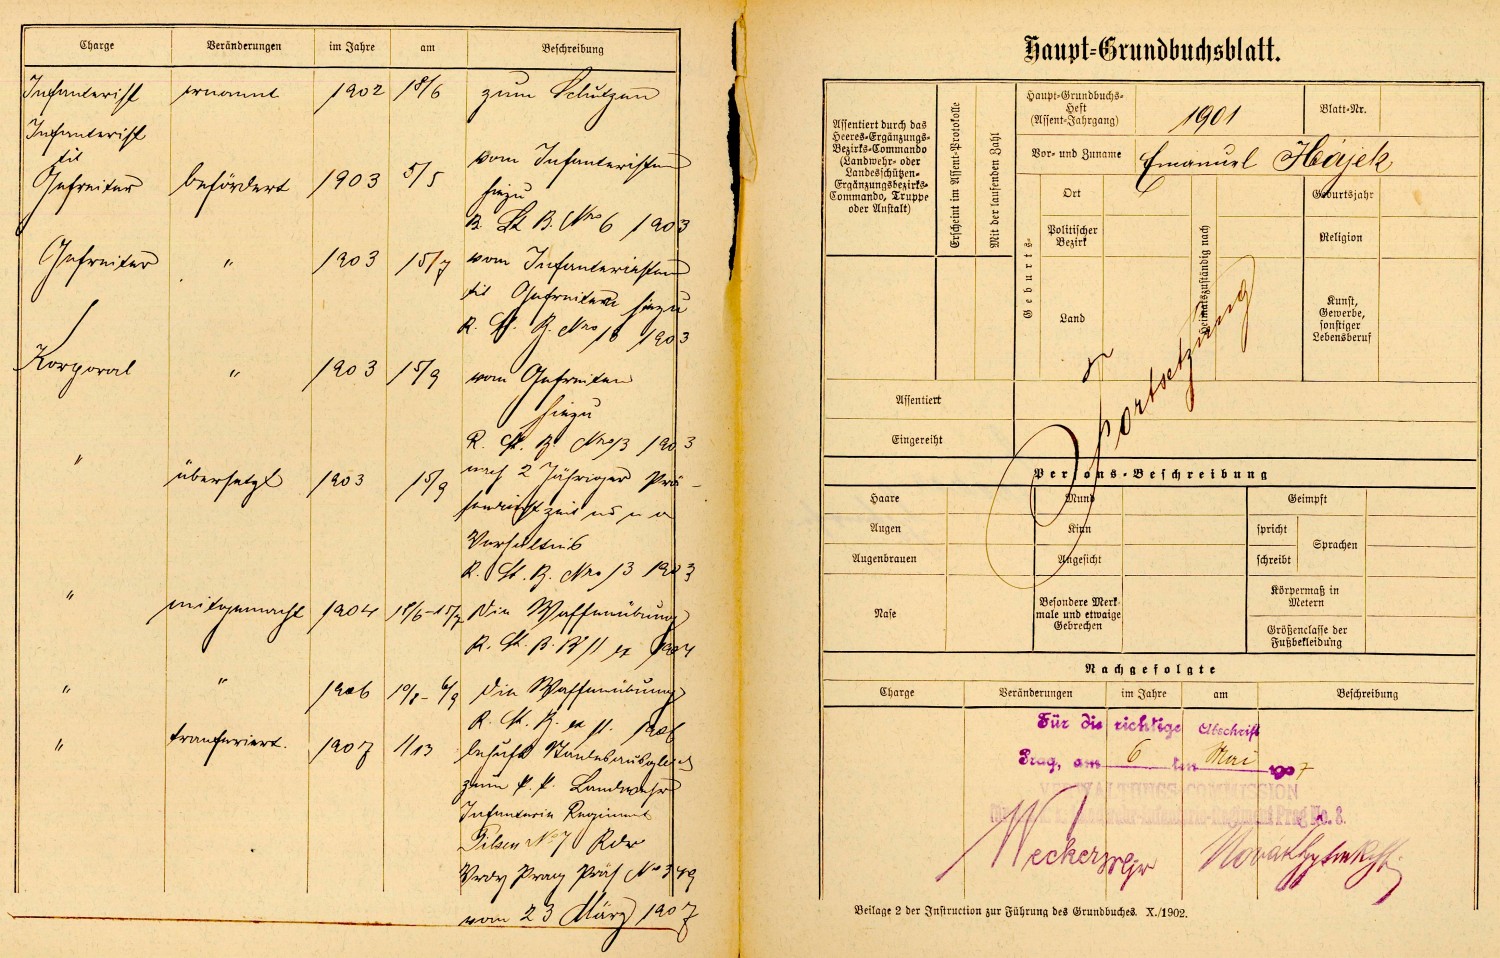 Charge Veränderungen im Jahre am Beschreibung
Infanterist ernannt 1902 18/6 zum Schützen
Infanterist
tit
Gefreiter befördert 1903 5/5 vom Infanteristen
hiezu
R. St. B. Nro 6 1903
Gefreiter " 1903 15/7 vom Infanteristen
tit Gefreiten hiezu
R. St. B. Nro 1903
Korporal " 1903 15/9 vom Gefreiten
hiezu
R. St. B. Nro 13 1903
" übersetzt 1903 15/9 nach 2 Jähriger Prä-
senzdienstzeit
Verhältnis
R. St. B. Nro 13 1903
" mitgemacht 1904 18/6-15/7 die Waffenübung
R. St. B. 11 ex 1904
" " 1906 10/8-6/9 die Waffenübung
R. St. B. ex 11. 1906
" transferiert. 1907 1/13 behufs Standesausgleich
zum k. k. Landwehr
Infanterie Regiment
Pilsen No 7 Kdo
Prag Präs No 349
vom 23 März 1907
Haupt-Grundbuchsblatt.
Assentiert durch das
Heeres-Ergänzungs-
Bezirks-Commando
(Landwehr- oder
Landesschützen-
Ergänzungsbezirks-
Commando, Truppe
oder Anstalt)
Erscheint im Assent-Protokolle
Mit der laufenden Zahl
Haupt-Grundbuchs-
Heft
(Assent-Jahrgang)
1901
Blatt-Nr.
Vor- und Zuname Emanuel Hájek
Geburts-
Ort
Politischer
Bezirk
Land
Heimatszuständig nach
Geburtsjahr
Religion
Kunst,
Gewerbe,
sonstiger
Lebensberuf
Fortsetzung
Assentiert
Eingereiht
Persons-Beschreibung
Haare Mund Geimpft
Augen Kinn spricht Sprachen
Augenbrauen Angesicht schreibt
Nase
Besondere Merk-
male und etwaige
Gebrechen
Körpermaß in
Metern
Größenclasse der
Fußbekleidung
Nachgefolgte
Charge Veränderungen im Jahre am Beschreibung
Für die richtige Abschrift
Prag, am 6 ten Mai 1907
VERWALTUNGS-COMMISSION
Landwehr-Infanterie-Regiment Prag No. 8.
Beilage 2 der Instruction zur Führung des Grundbuches. X./1902.